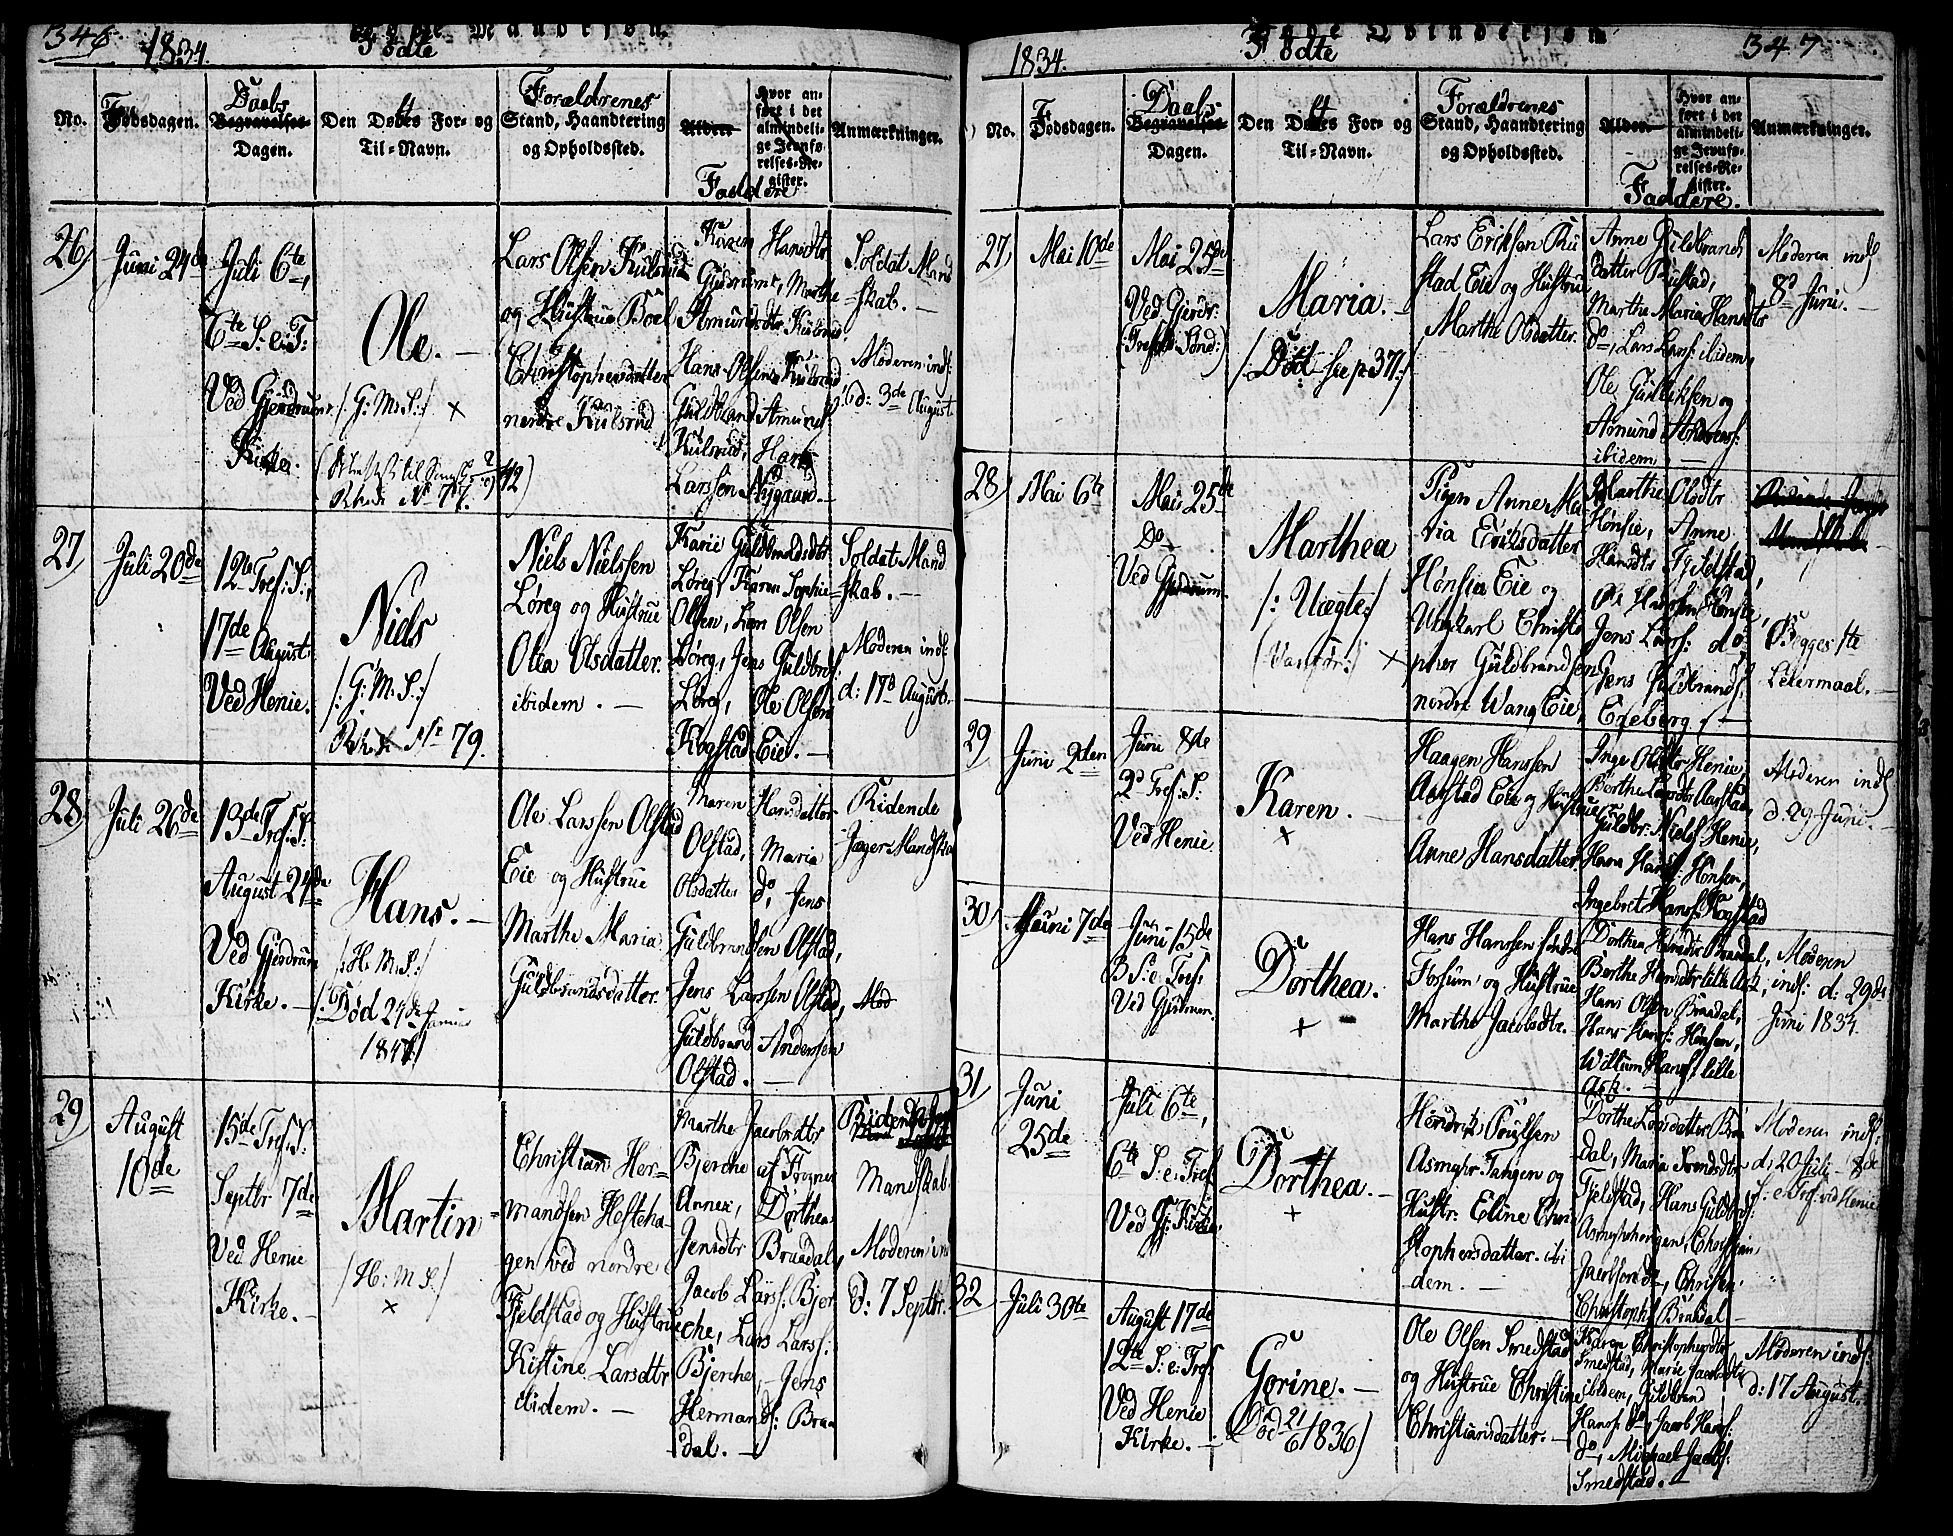 346
1834.
Fødte
No.
Fødsdagen.
Daabs
Begravelses-
Dagen.
Den Dødes For- og
Til-Navn.
Forældrenes
Stand, Haandtering
og Opholdssted.
Alder
Hvor an-
ført i det
almindeli-
ge Jevnfø-
relses-Re-
gister.
Faddere
Anmærkninger.
26)
Juni 24de
Juli 6te,
6te S. e. T:
Ved Gjerdrums
Kirke.
Ole. —
/: G: M: S:/ ×
No 77.
Lars Olsen Kulsrud
og Hustrue Boel
Christophersdatter
nordre Kulsrud
Karen Hansdtr
Gjerdrum, Marthe
Amundsdtr Kulsrud,
Hans Olsen Kulsrud,
Guldbrand Amunds:
Kulsrud, Hans
Larssen Nygaard. —
Soldat Mand
skab. —
Moderen inds:
d: 3de August
27)
Juli 20de
12te Tref: S:,
17de August.
Ved Henie.
Niels
/: G: M: S:/
No 79.
Niels Nielssen
Løreg og Hustrue
Olea Olsdatter.
ibidem. —
Karie Guldbrandsdtr
Løreg, Karen Sophie
Olsen, Lars Olsen
Løreg, Jens Guldbrds:
Løreg, Ole Olsen
Kogstad Eie. —
Soldat Mand
skab. —
Moderen inds:
d: 17de August. —
28)
Juli 26de
13de Tref: S:
August 24de
Ved Gjerdrum
Kirke. —
Hans. —
/: H. M. S:/
/: Død 27de Januar
Ole Larssen Olstad
Eie og Hustrue
Marthe Maria
Guldbrandsdatter.
Maren Hansdatter
Olstad, Maria
Olsdatter do, Jens
Guldbrandsen Olstad,
Jens Larssen Olstad,
Guldbrand Andersen
Olstad. —
Ridende
Jæger-Mandska
Mod
29)
August
10de
15de Tref: S:
Septbr 7de
Ved Henie
Kirke. —
Martin
/: H: M: S:/
×
Christian Her-
mandsen Hesteha-
gen ved nordre
Fjeldstad og Hustrue
Kistine Larsdtr
ibidem. —
Marthe Jacobsdtr
Bjerche af Frogner
Annex, Dorthea
Jensdtr Braadal,
Jacob Larss: Bjer
che, Lars Larss:
Bjerche, Jens
Hermands: Braa
dal. —
Mandskab.
Moderen ind
d: 7 Septbr.
1834.
Fødte
347
No.
Fødsdagen.
Daabs
Begravelses-
Dagen.
Den Dødes For- og
Til-Navn.
Forældrenes
Stand, Haandtering
og Opholdssted.
Alder.
Hvor an-
ført i det
almindeli-
ge Jevnfø-
relses-Re-
gister.
Faddere.
Anmærkninger.
27)
Mai 10de
Mai 25de
Ved Gjerdr:
(Trefold: Sønd:)
Maria. —
/: Død see p 371:/
Lars Eriksen Ru
stad Eie og Hustrue
Marthe Olsdatter.
Anne Guldbrands
datter Rustad,
Marthe Maria Hansdtr
do, Lars Larss: ibidem
Ole Gulliksen og
Amund Anders:
ibidem —
Moderen inds
8de Juni. —
28)
Mai 6te
Mai 25de
Do
Ved Gjerdrum.
Marthea
/: Uægte/
Pigen Anne Ma-
ria Eriksdatter
Hønsie Eie og
Ungkarl Christo
pher Guldbrandsen
nordre Wang Eie,
Marthe Olsdtr
Hønsie, Anne
Hansdtr Fjeldstad,
Ole Hansen Hønsie,
Jens Larss: do
Jens Guldbrands:
Begges 1te
Leiermaal. —
29)
Juni 2den
Juni 8de
2d Tref: S:
Ved Henie.
Karen. —
×
Haagen Hanssen
Aarstad Eie og Hustrue
Anne Hansdatter.
Inge Olsdtr Henie,
Berthe Larsdtr Aarstad,
Guldbr: Niels: Henie,
Hans Hans: Hønsen,
Ingebret Hans: Kogstad
Moderen inds
d. 29 Juni. —
30)
Juni 7de
Juni 15de
3 S: e: Tref:
Ved Gjerdrum.
Dorthea.
×
Hans Hanssen søndre
Fossum og Hustrue
Marthe Jacobsdtr.
Dorthea Hansdtr Braadal,
Berthe Hansdtr lille Ask,
Hans Olsen Braadal,
Hans Hans: Hønsen,
Willum Hans: lille
Ask. —
Moderen
inds: d: 29de
Juni 1834.
31)
Juni
25de
Juli 6te,
6te S. e. Tref:
Ved Gj: Kirke.
Dorthea. —
×
Hendrik Poulsen
Asmyhr Tangen og
Hustr: Eline Chri
stophersdatter. ibi
dem. —
Dorthe Larsdatter Braa
dal, Maria Svendsdtr
Fjeldstad, Hans Guldbrds:
Asmyhrhaugen, Christian
Jacobsen do, Christen
Christoph: Braadal —
Moderen inds:
d: 20 Juli — 8de
S: e. Tref: ved Henie
32)
Juli 30te
August 17de
12te S: e: Tref:
Ved Henie
Kirke. —
Gorine. —
Død 21/6 1836/
Ole Olsen Smedstad
og Hustrue Christine
Christiansdatter. —
Karen Christophersdtr
Smedstad, Marie Jacobsdtr
ibidem, Guldbrand
Hans: do, Jacob Hans:
do, Michael Jacobs:
Smedstad. —
Moderen inds:
d: 17 August. —